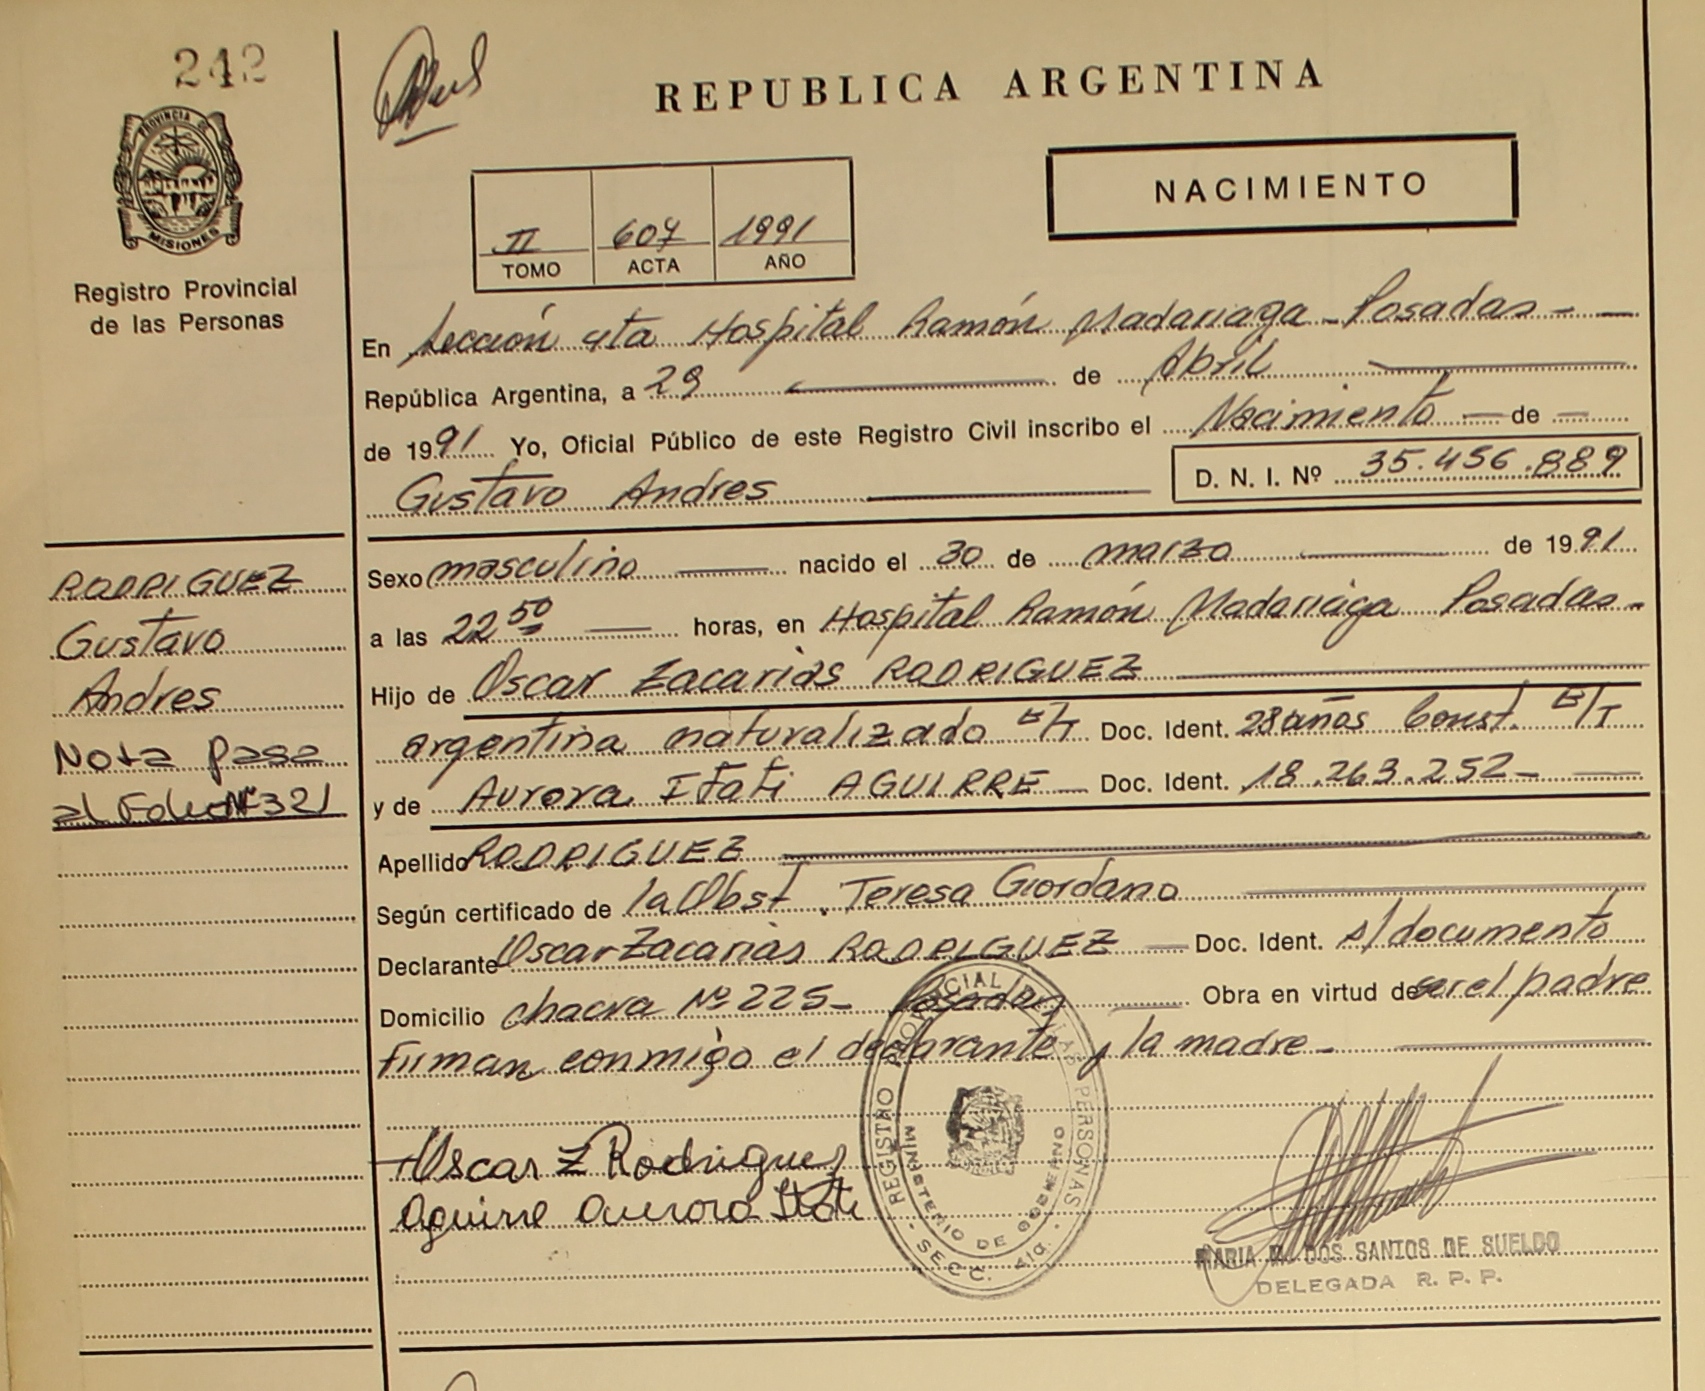 242
REPUBLICA ARGENTINA
PROVINCIA DE
MISIONES
NACIMIENTO
II 607 1991
TOMO ACTA AÑO
Registro Provincial
de las Personas
En Sección 4ta Hospital Ramón Madariaga - Posadas -
República Argentina, a 29 de Abril
de 1991. Yo, Oficial Público de este Registro Civil inscribo el Nacimiento - de -
Gustavo Andres D. N. I. Nº 35.456.889
RODRIGUEZ
Gustavo
Andres
Nota pasa
al Folio Nº 321
Sexo masculino nacido el 30 de marzo de 1991
a las 22 50 horas, en Hospital Ramón Madariaga Posadas -
Hijo de Oscar Zacarias RODRIGUEZ
argentina naturalizado E/T Doc. Ident. 28 años Const. E/T
y de Aurora Itati AGUIRRE Doc. Ident. 18.263.252 -
Apellido RODRIGUEZ
Según certificado de la Obst. Teresa Giordano
Declarante Oscar Zacarias RODRIGUEZ Doc. Ident. s/documento
Domicilio chacra Nº 225 - Posadas Obra en virtud de ser el padre
Firman conmigo el declarante y la madre -
Oscar Z Rodriguez
Aguirre Aurora Itati
REGISTRO PROVINCIAL DE LAS PERSONAS
MINISTERIO DE GOBIERNO
SECC. 4ta.
MARIA DOS SANTOS DE SUELDO
DELEGADA R. P. P.